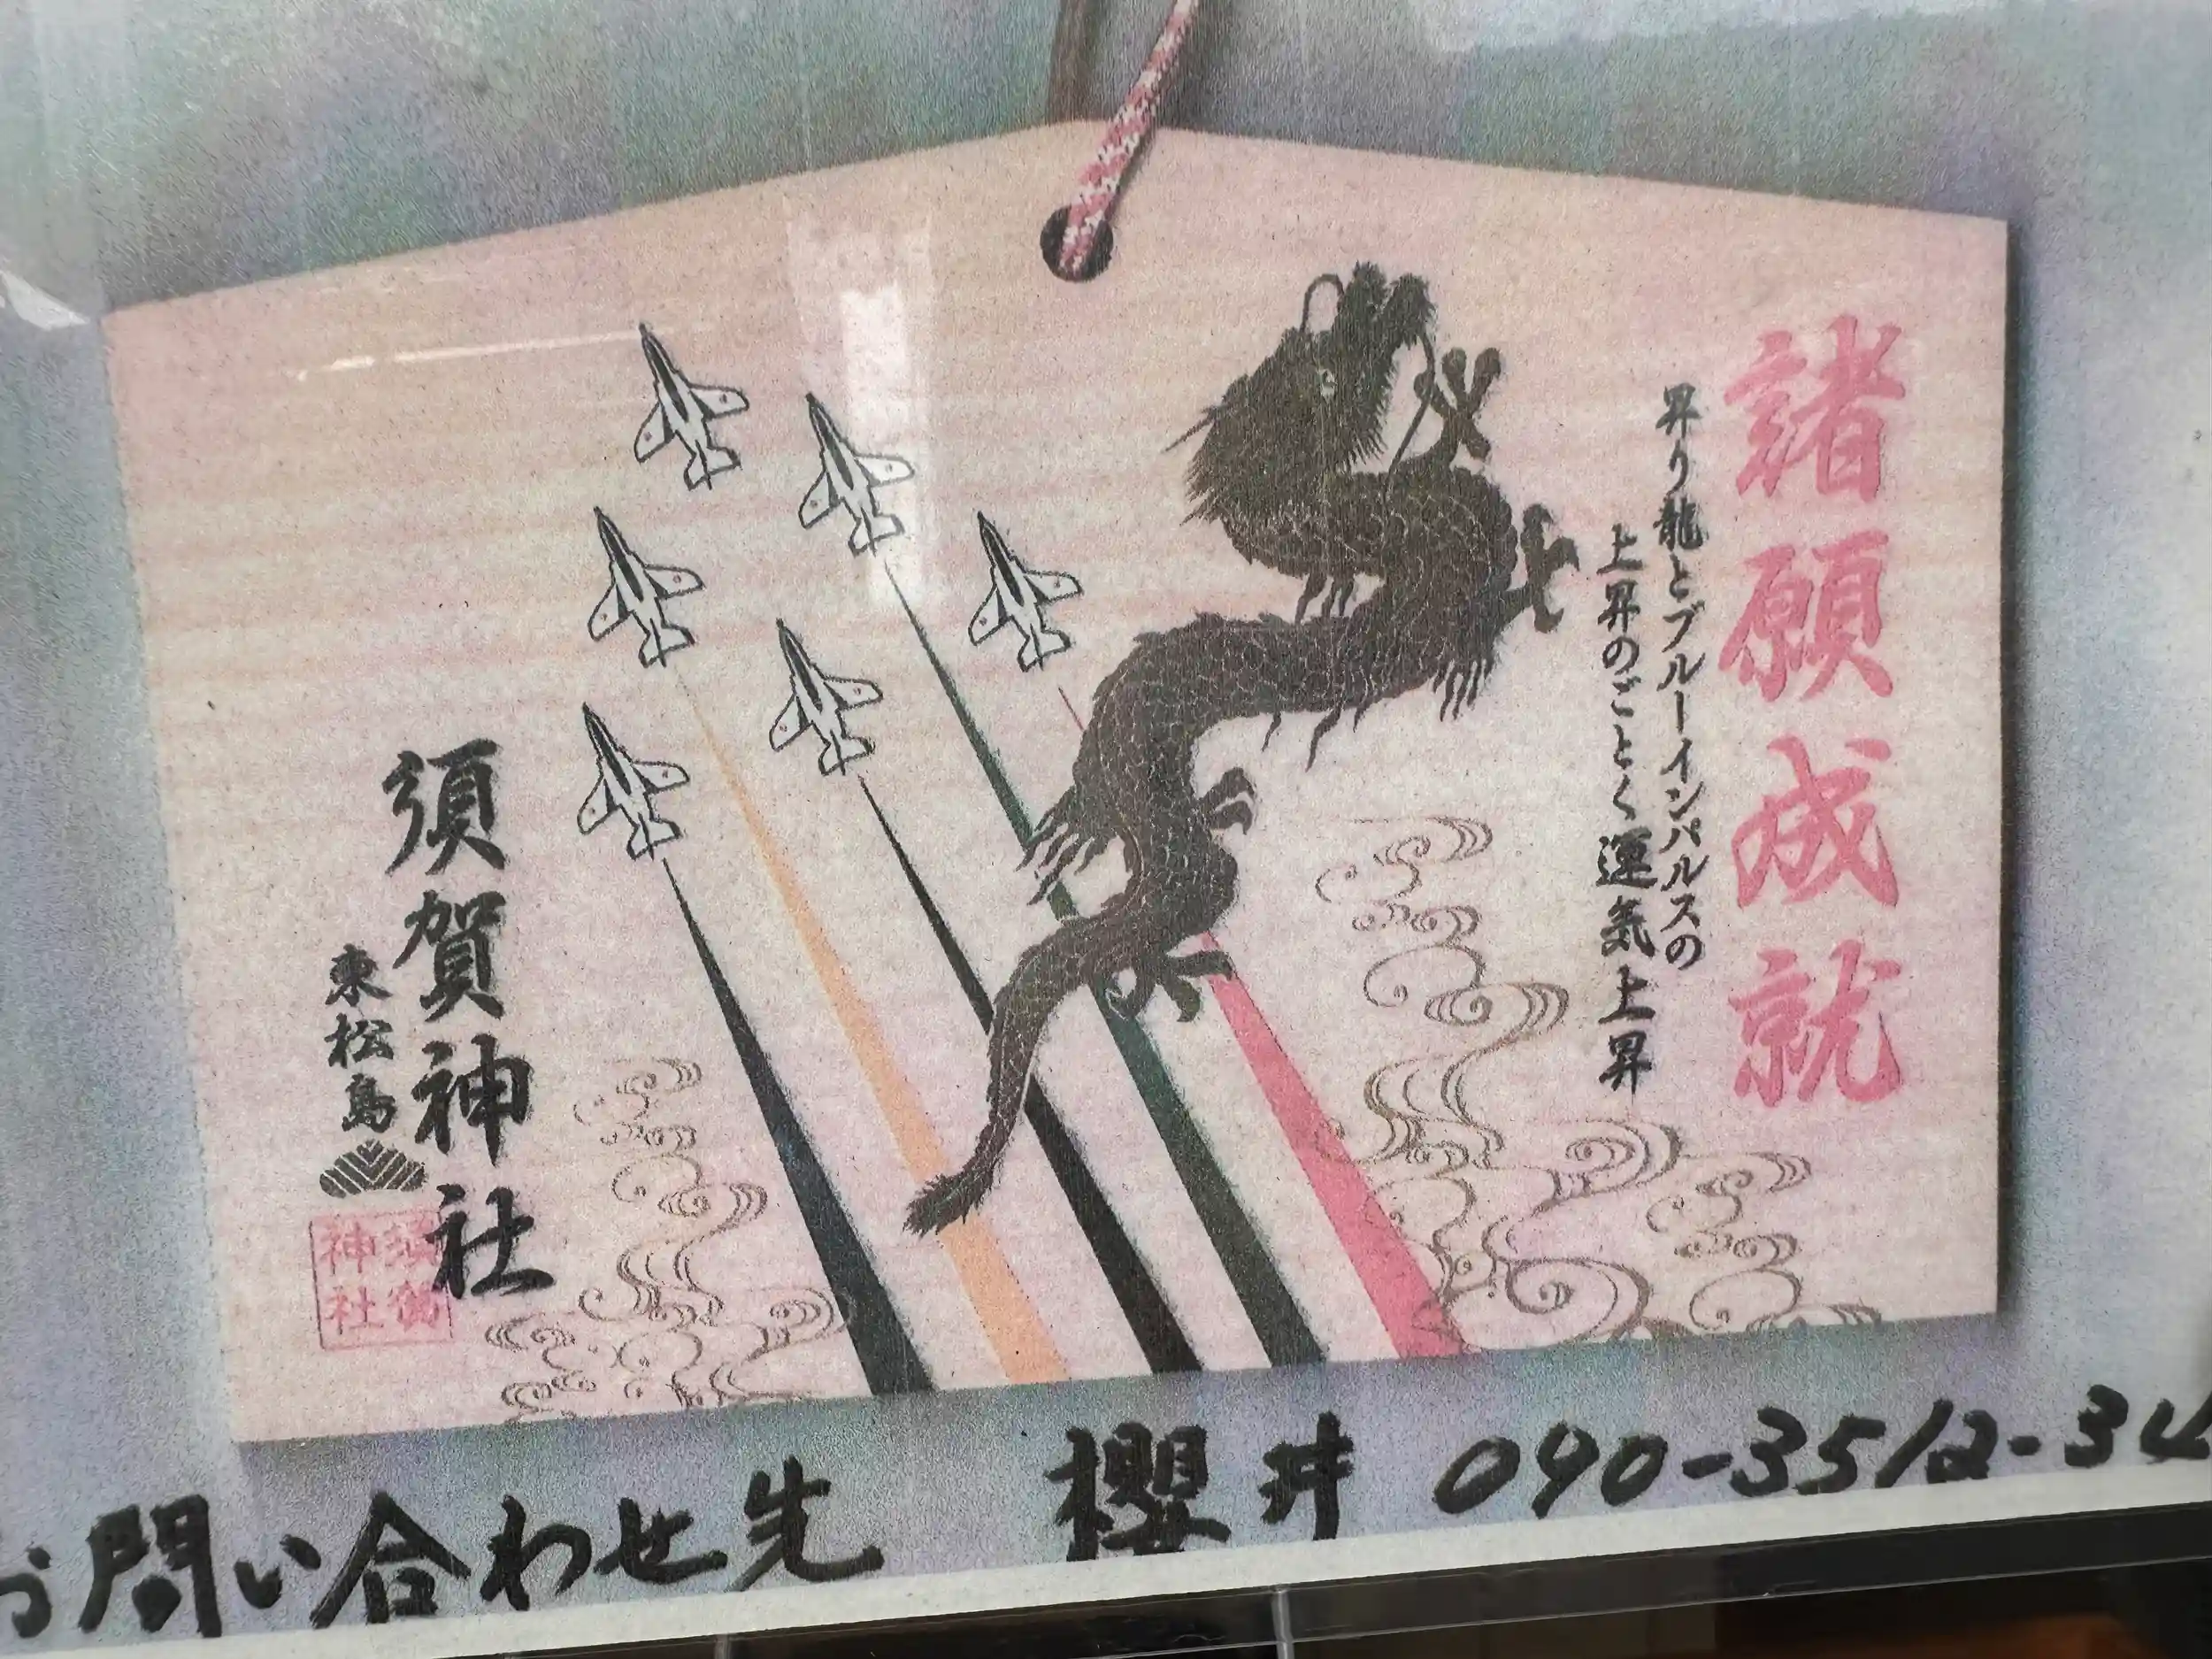 諸願成就
昇り龍とブルーインパルスの
上昇のごとく運気上昇
須賀神社
東松島
お問い合わせ先 櫻井 090-3512-34